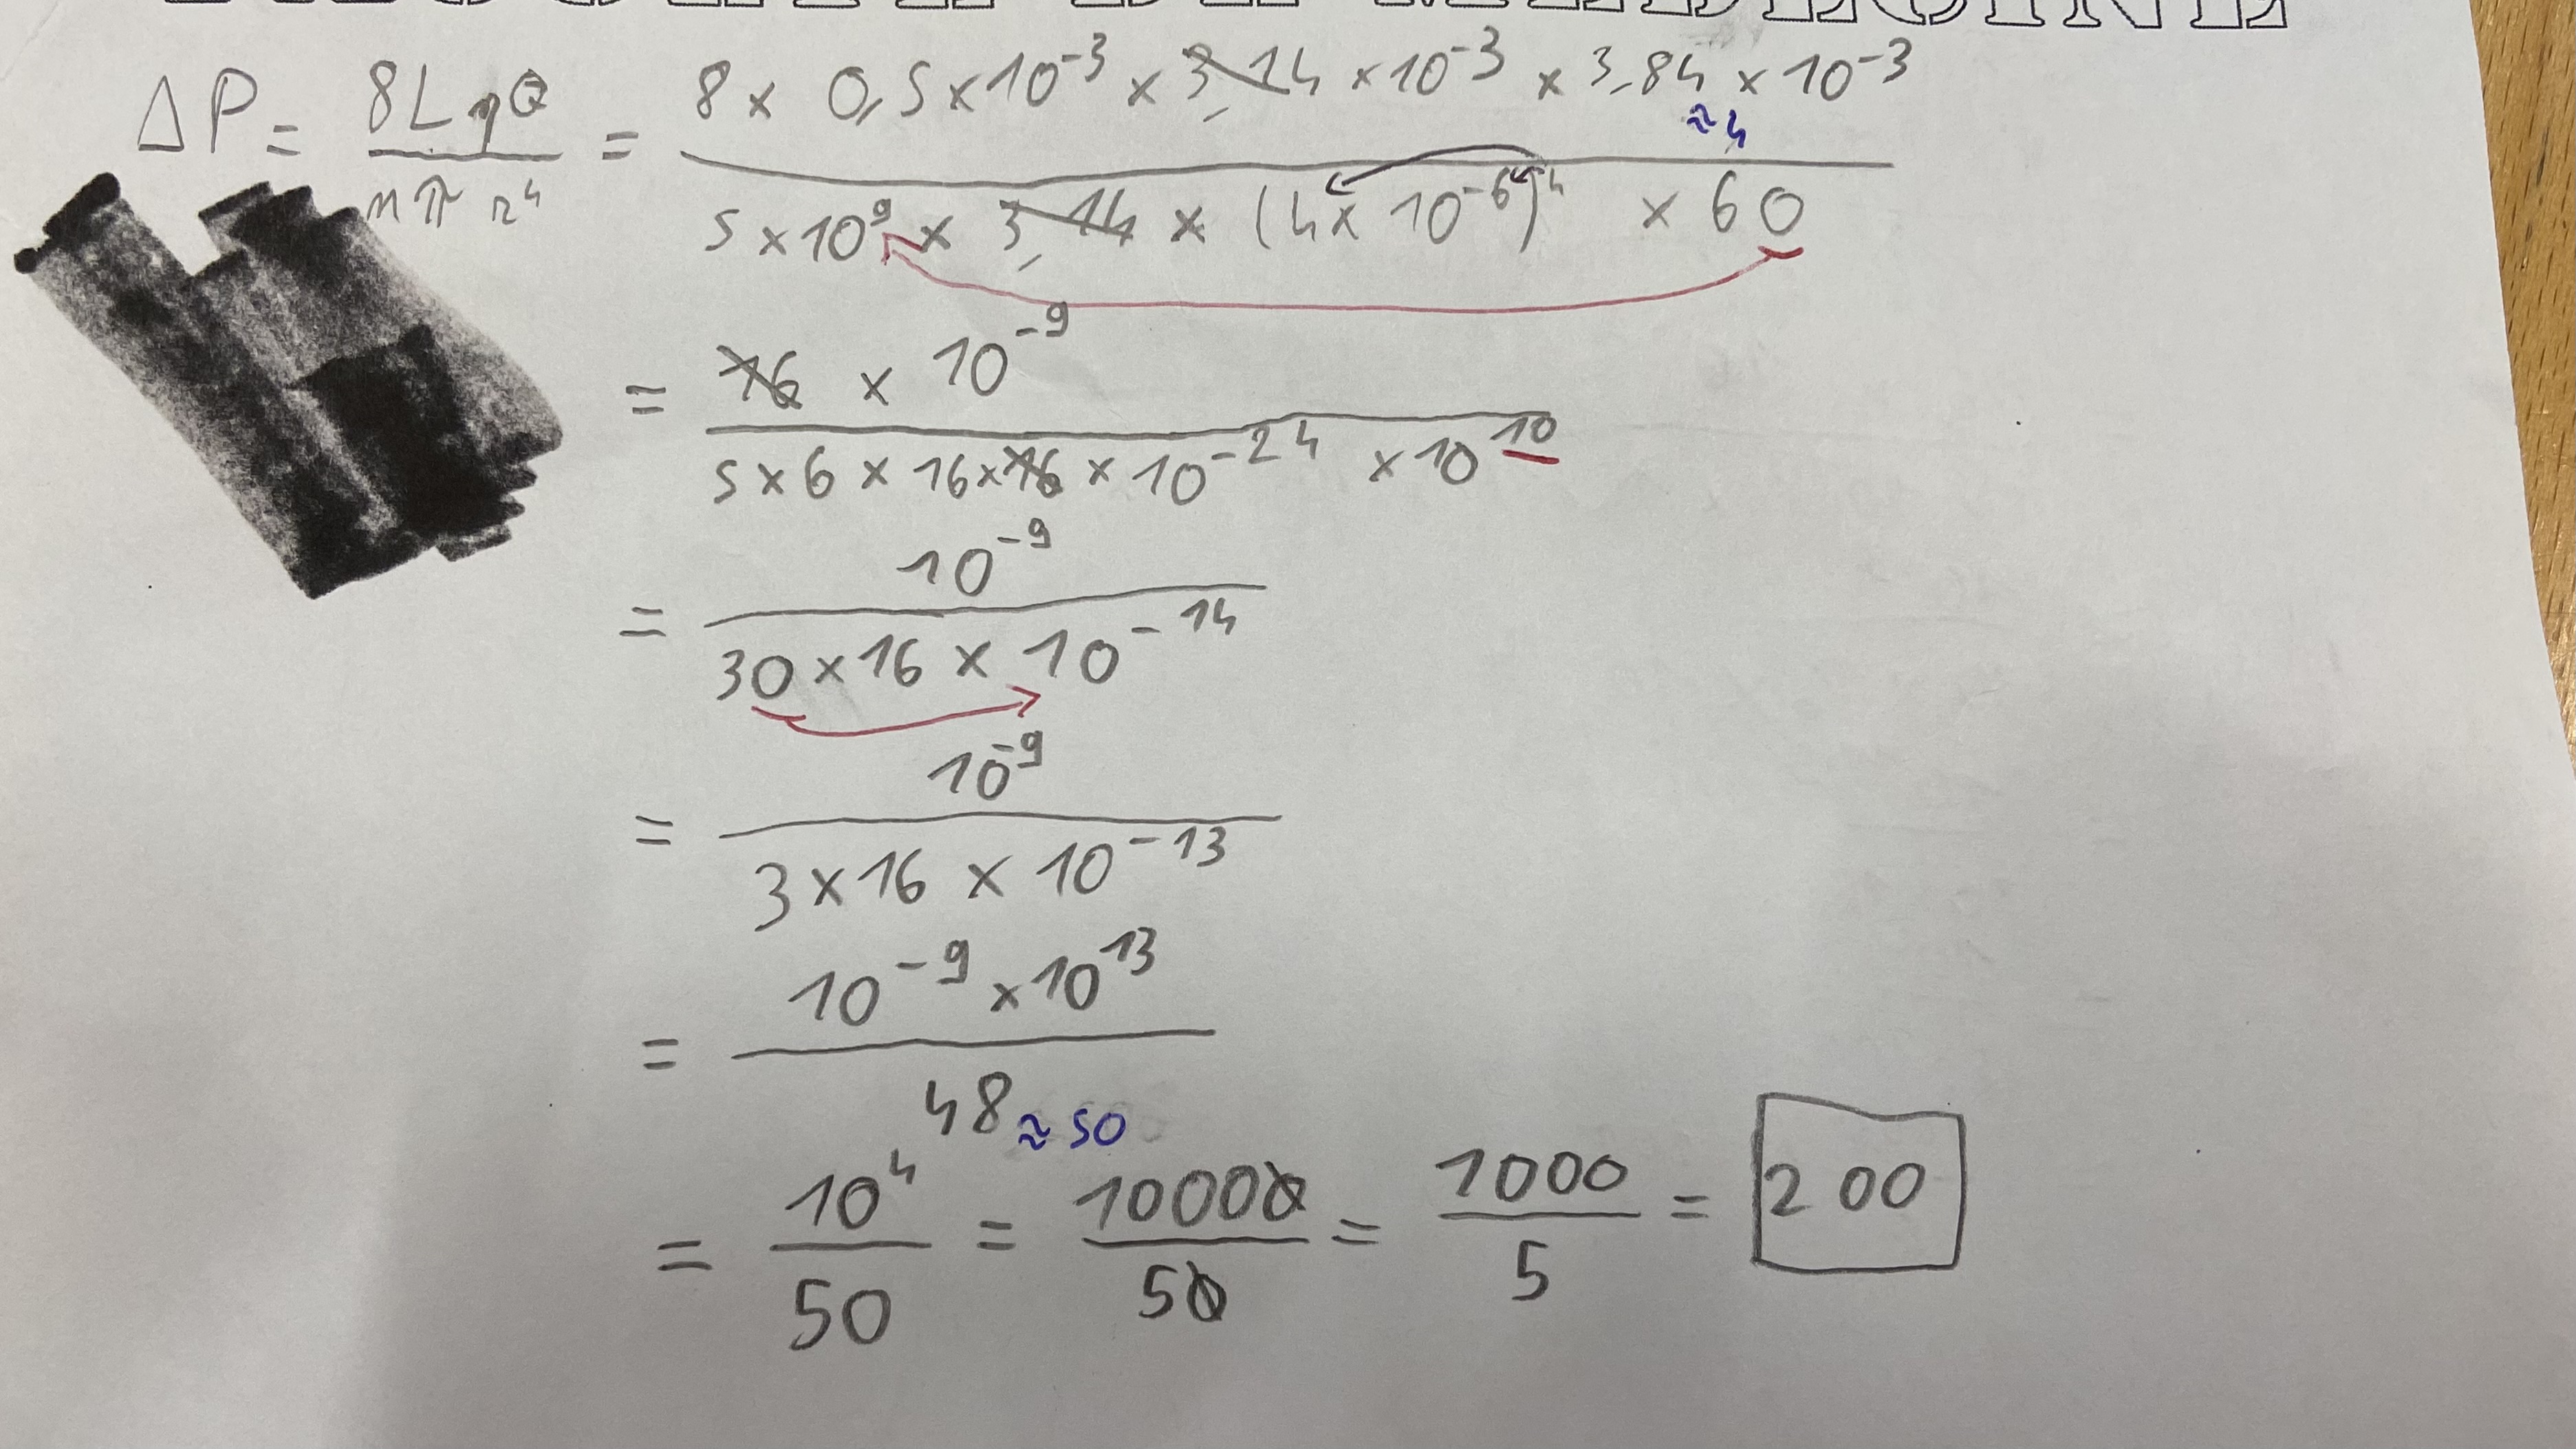 ΔP = 8LηQ / nπr⁴ = 8 x 0,5 x 10⁻³ x 3,14 x 10⁻³ x 3,84 x 10⁻³ / 5 x 10⁹ x 3,14 x (4 x 10⁻⁶)⁴ x 60
≈ 4
= 16 x 10⁻⁹ / 5 x 6 x 16 x 16 x 10⁻²⁴ x 10¹⁰
= 10⁻⁹ / 30 x 16 x 10⁻¹⁴
= 10⁻⁹ / 3 x 16 x 10⁻¹³
= 10⁻⁹ x 10¹³ / 48 ≈ 50
= 10⁴ / 50 = 10000 / 50 = 1000 / 5 = 200